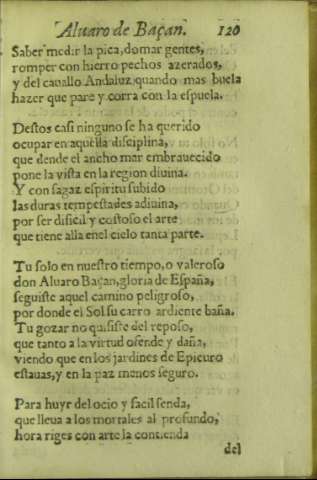 Aluaro de Baçan. 120
Saber medir la pica, domar gentes,
romper con hierro pechos azerados,
y del cauallo Andaluz quando mas buela
hazer que pare y corra con la espuela.
Destos casi ninguno se ha querido
ocupar en aquella disciplina,
que dende el ancho mar embrauecido
pone la vista en la region diuina.
Y con sagaz espiritu subido
las duras tempestades adiuina,
por ser dificil y costoso el arte
que tiene alla enel cielo tanta parte.
Tu solo en nuestro tiempo, o valeroso
don Aluaro Baçan, gloria de España,
seguiste aquel camino peligroso,
por donde el Sol su carro ardiente baña.
Tu gozar no quisiste del reposo,
que tanto a la virtud ofende y daña,
viendo que en los jardines de Epicuro
estauas, y en la paz menos seguro.
Para huyr del ocio y facil senda,
que lleua a los mortales al profundo,
hora riges con arte la contienda
del